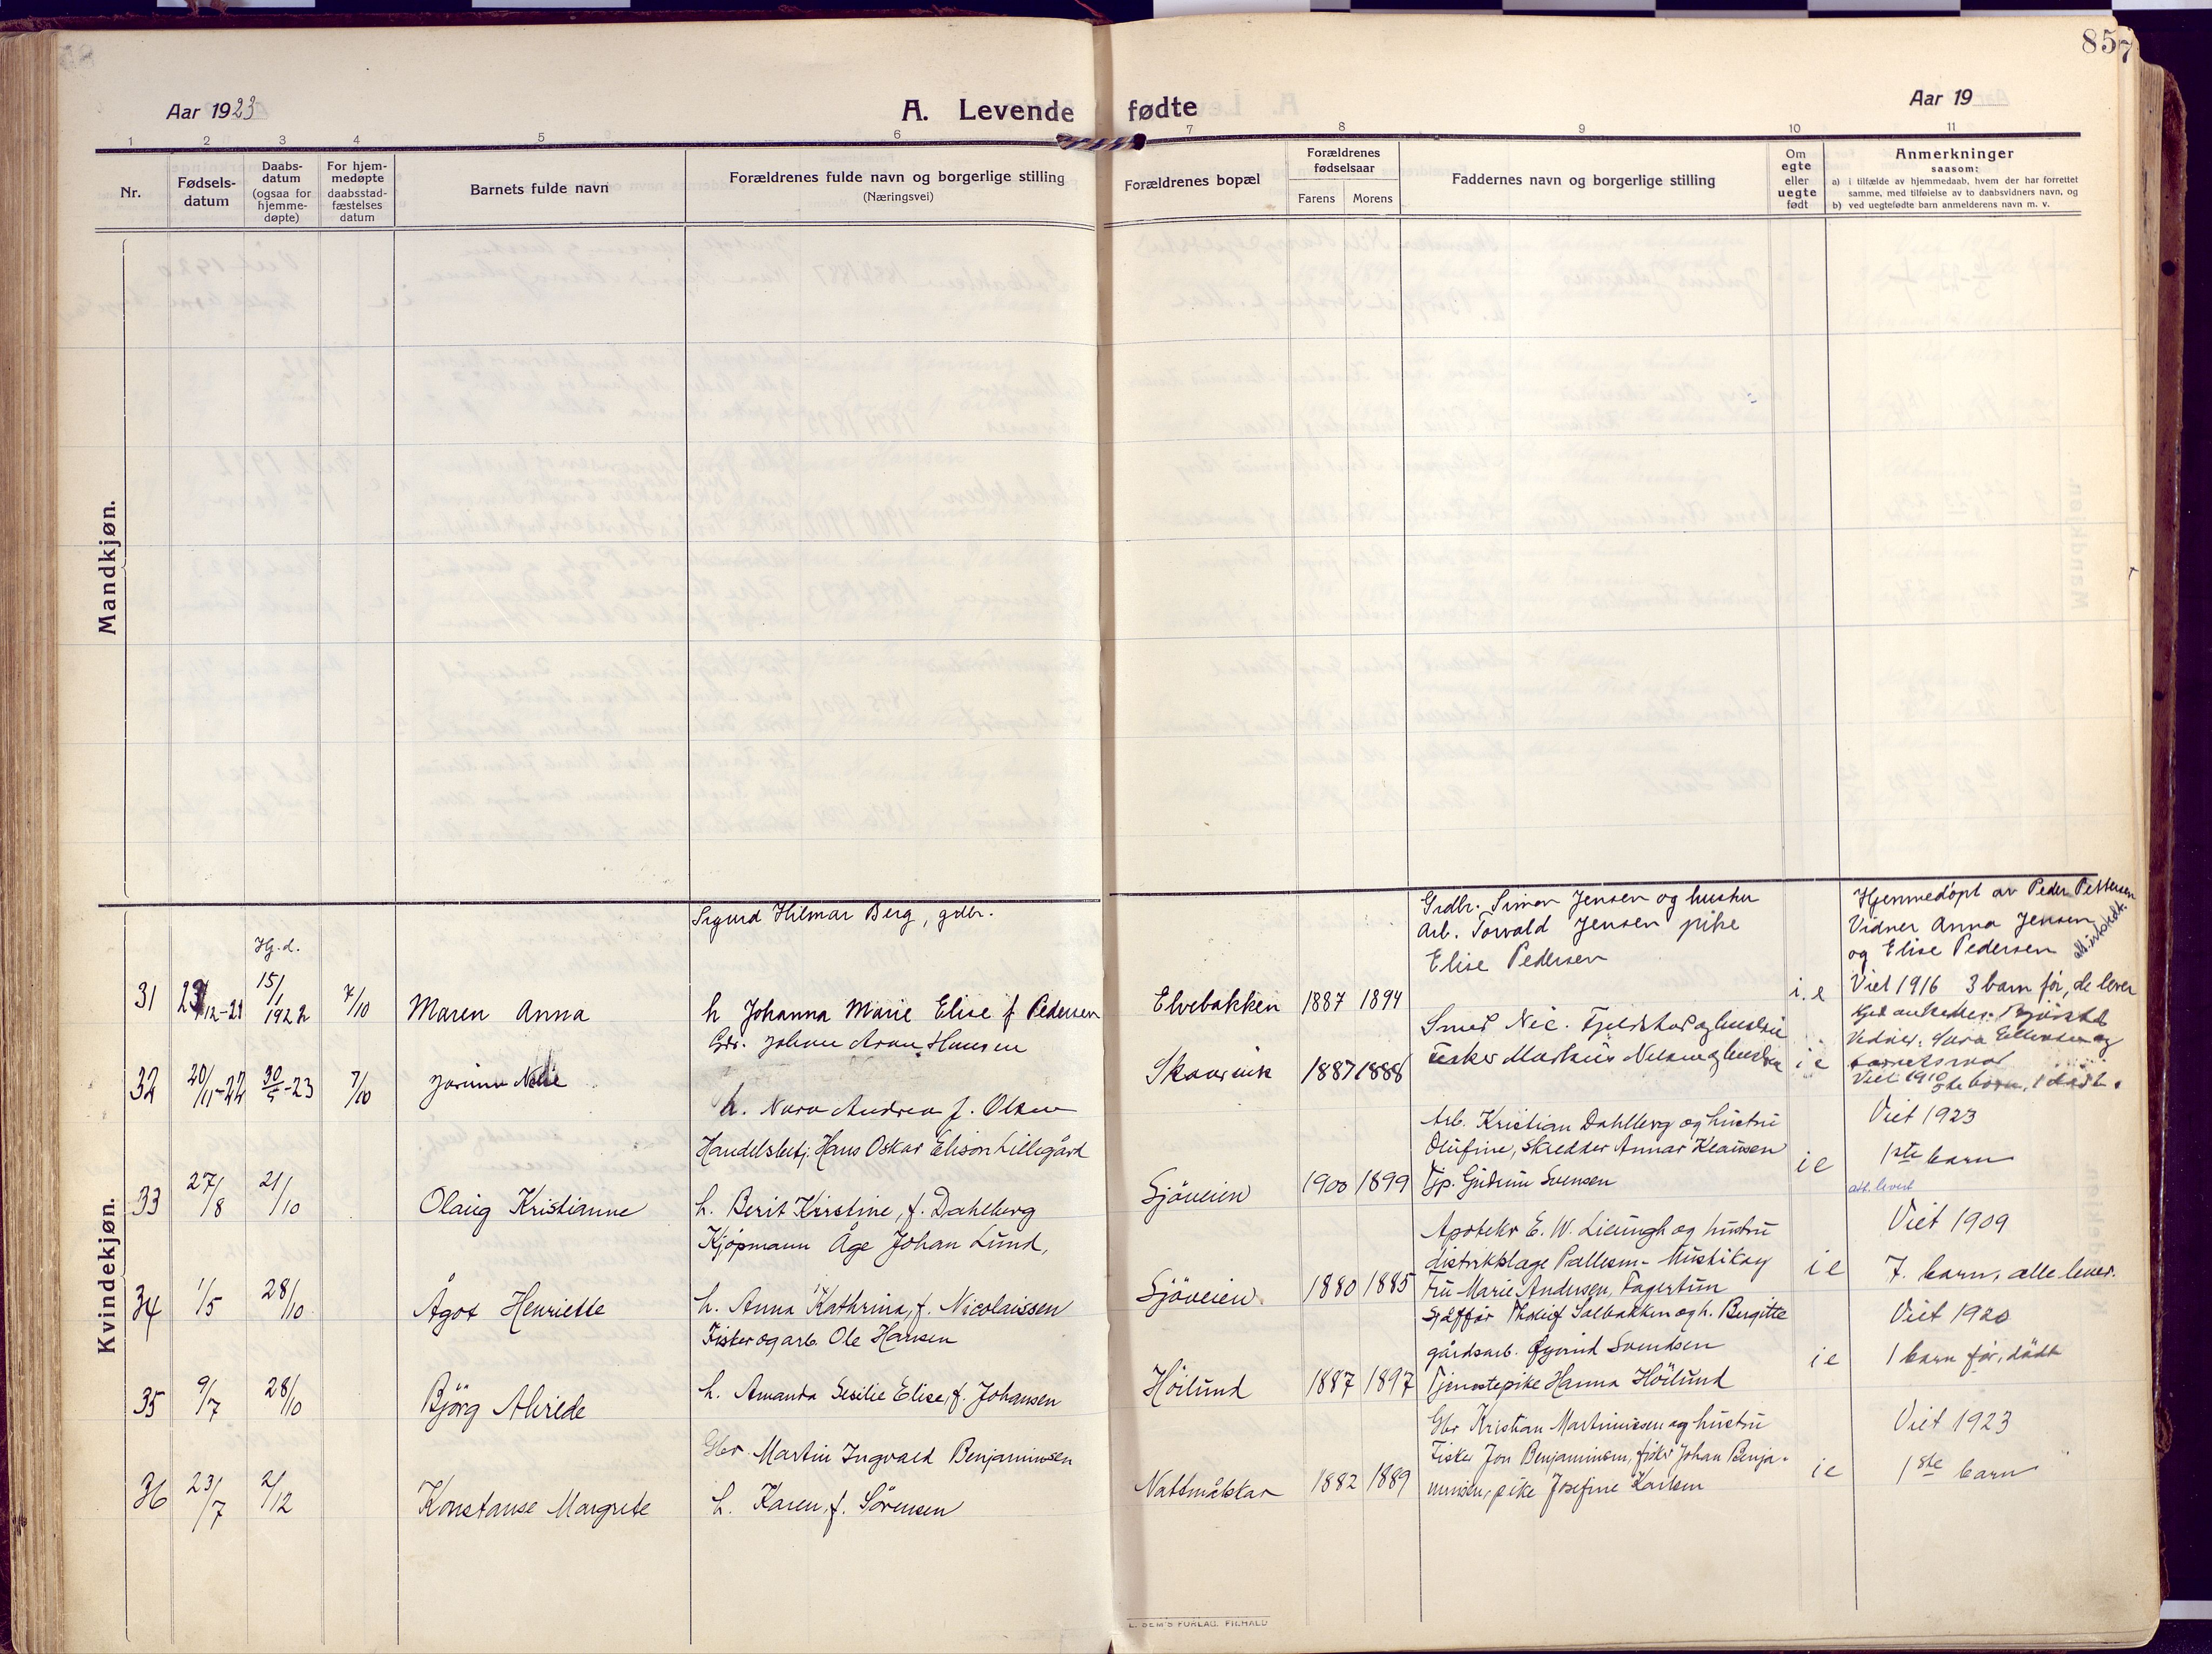 857
Aar 1923
A. Levende fødte
Aar 19
1 2 3 4 5 6 7 8 9 10 11
Nr.
Fødsels-
datum
Daabs-
datum
(ogsaa for
hjemme-
døpte)
For hjem-
medøpte
daabsstad-
fæstelses
datum
Barnets fulde navn
Forældrenes fulde navn og borgerlige stilling
(Næringsvei)
Forældrenes bopæl
Forældrenes
fødselsaar
Farens Morens
Faddernes navn og borgerlige stilling
Om
egte
eller
uegte
født
Anmerkninger
saasom:
a) i tilfælde av hjemmedaab, hvem der har forrettet
samme, med tilføielse av to daabsvidners navn, og
b) ved uegtefødte barn anmelderens navn m. v.
Mandkjøn.
Kvindekjøn.
Sigurd Hilmar Berg, gdbr.
Hj.d.
31 15/1 1922 7/10 Maren Anna
h Johanna Marie Elise f Pedersen
Elvebakken 1887 1894
Grdbr. Simon Jensen og hustru
Arb. Torvald Jensen pike
Elise Pedersen
i.e
Hjemmedöpt av Peder Pettersen
Vidner Anna Jensen
og Elise Pedersen
Viet 1916 3 barn før, de lever
Johan Aron Hansen
32 20/11-22 30/5-23 7/10
h. Nora Andrea f. Olsen
Skaarvik 1887 1888
Smed Nic. Fjeldstad og hustru
Fisker Markus Nilsen og hustru
i e
Viet 1910
33 27/8 21/10 Olaug Kristianne
Handelsbetj. Hans Oskar Elison Lillegård
h. Berit Kristine, f. Dahlberg
Sjöveien 1900 1899
Arb. Kristian Dahlberg og hustru
Olufine, skredder Annar Klausen
Tjp. Gudrun Svensen
i e
Viet 1923
1ste barn
34 1/5 28/10 Ågot Henriette
Kjöpmann Åge Johan Lund,
h. Anna Kathrina, f. Nicolaissen
Sjöveien. 1880 1885
Apoteker E. W. Lieungh og hustru
Fru Marie Andersen, Fagertun
i e
Viet 1909
7. barn, alle lever.
35 9/7 28/10 Björg Alvilde
Fisker og arb. Ole Hansen
h. Amanda Sesilie Elise, f. Johansen
Höilund 1887 1897
gårdsarb. Øyvind Svendsen
Tjenestepike Hanna Höilund
i e
Viet 1920
1 barn før, dödt
36 23/7 2/12 Konstanse Margrete
Gbr Martin Ingvald Benjaminsen
h. Karen, f. Sörensen
Nattmålskar 1882 1889
Gbr Kristian Martinussen og hustru
Fisker Jon Benjaminsen, fisker Johan Benja-
minsen, pike Josefine Karlsen
i e
Viet 1923
1ste barn